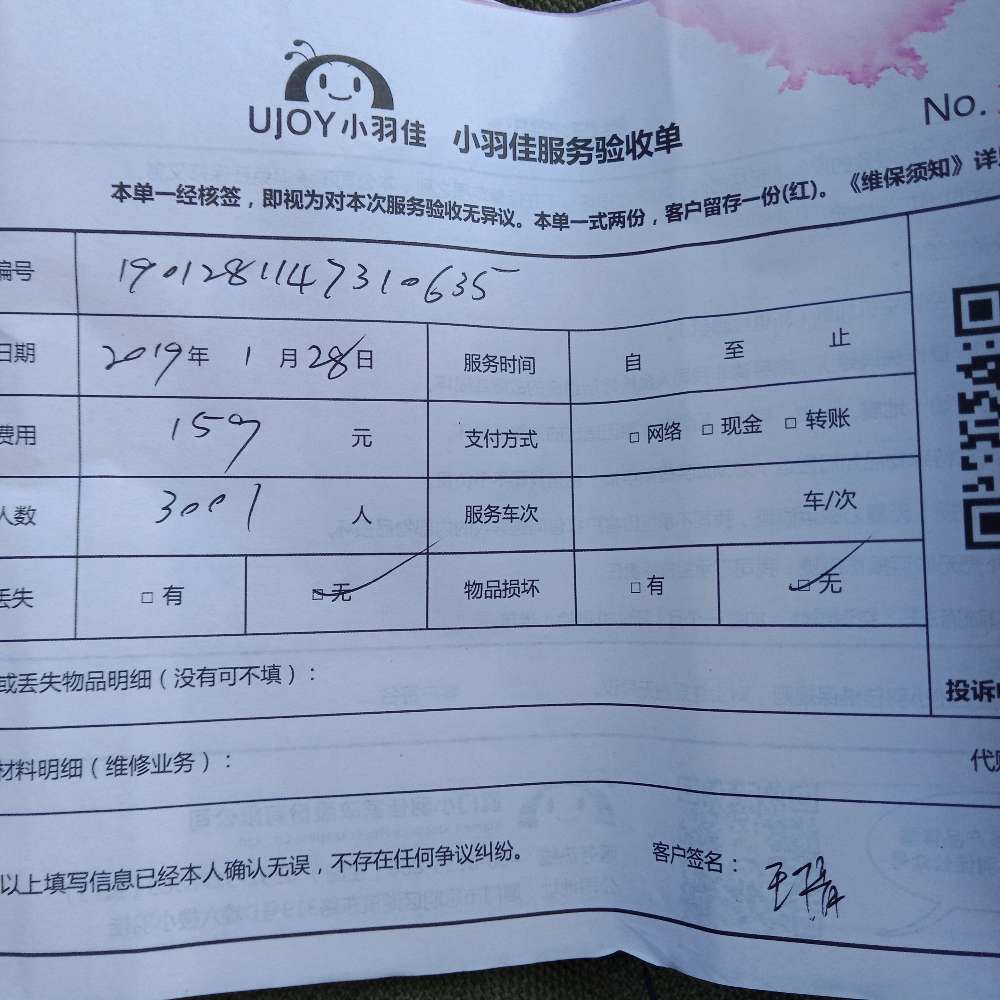 UJOY小羽佳 小羽佳服务验收单
No.
本单一经核签，即视为对本次服务验收无异议。本单一式两份，客户留存一份(红)。《维保须知》详
编号 1901281147310635
日期 2019年 1月28日 服务时间 自 至 止
费用 159 元 支付方式 □ 网络 □ 现金 □ 转账
人数 3001 人 服务车次 车/次
丢失 □ 有 □ 无 物品损坏 □ 有 □ 无
或丢失物品明细（没有可不填）：
投诉
材料明细（维修业务）：
代购
以上填写信息已经本人确认无误，不存在任何争议纠纷。 客户签名：